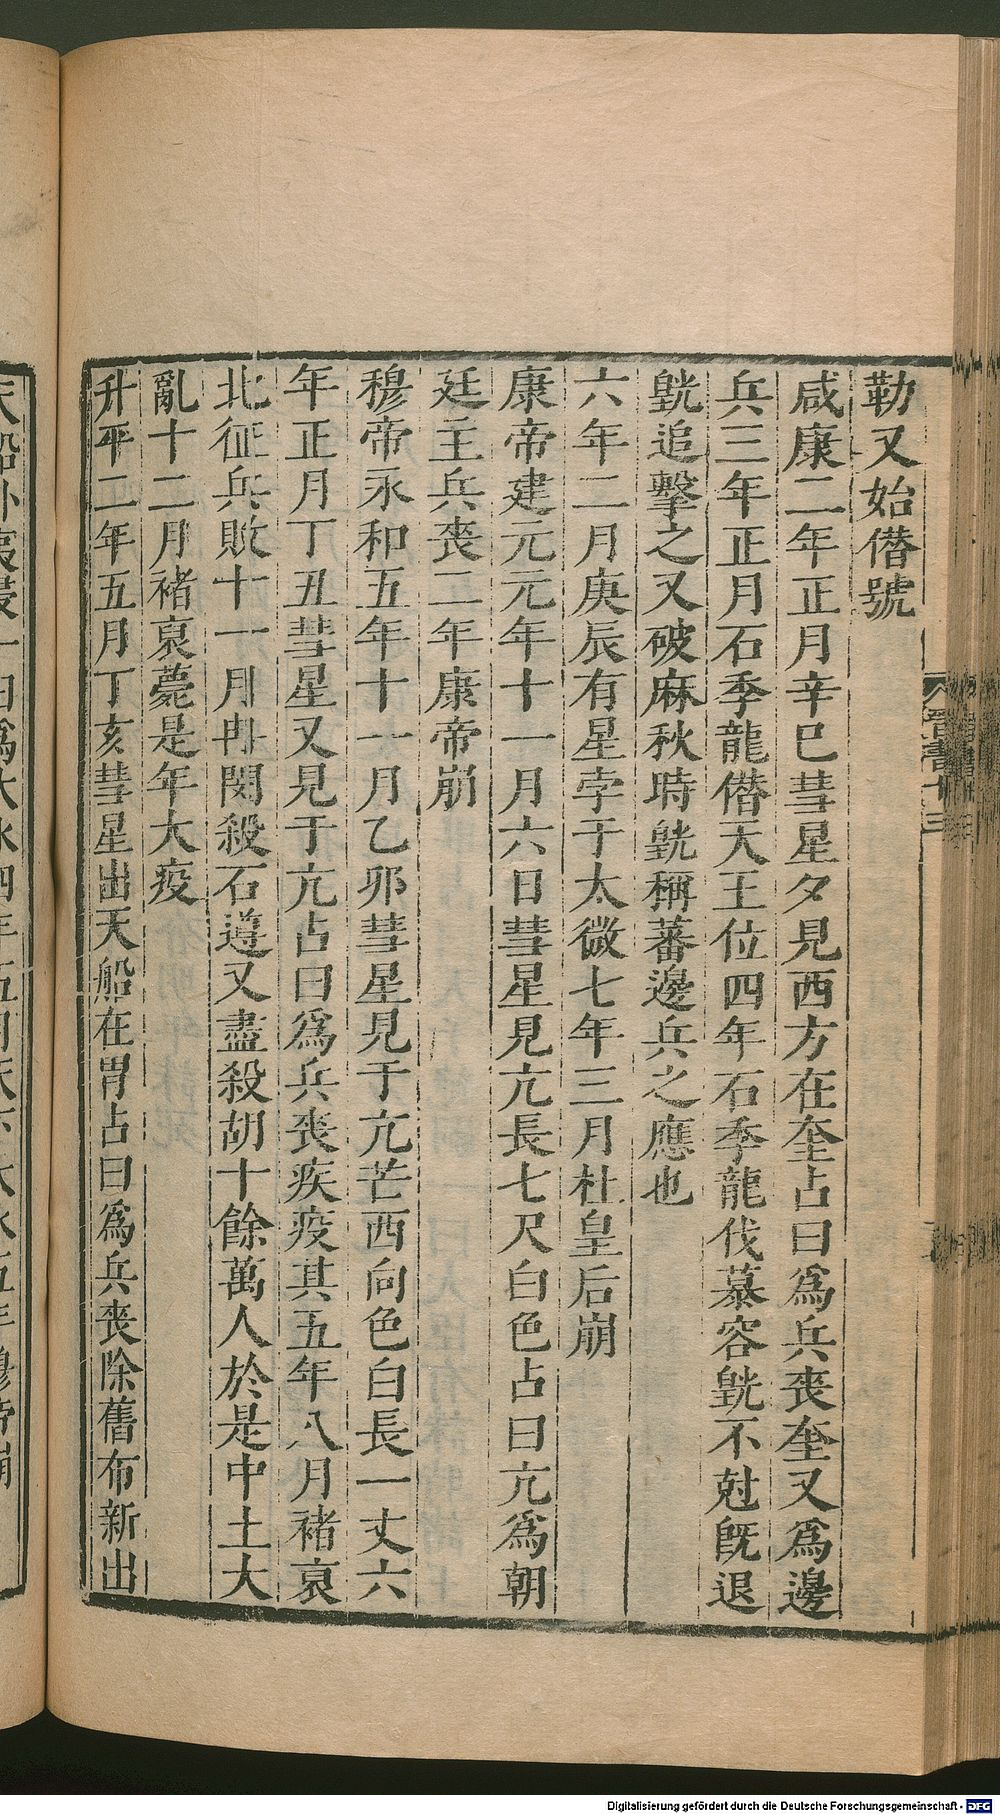 勒又始僭號
咸康二年正月辛巳彗星夕見西方在奎占曰爲兵喪奎又爲邊
兵三年正月石季龍僭天王位四年石季龍伐慕容皝不尅旣退
皝追擊之又破麻秋時皝稱蕃邊兵之應也
六年二月庚辰有星孛于太微七年三月杜皇后崩
康帝建元元年十一月六日彗星見亢長七尺白色占曰亢爲朝
廷主兵喪二年康帝崩
穆帝永和五年十一月乙卯彗星見于亢芒西向色白長一丈六
年正月丁丑彗星又見于亢占曰爲兵喪疾疫其五年八月褚裒
北征兵敗十一月冉閔殺石遵又盡殺胡十餘萬人於是中土大
亂十二月褚裒薨是年大疫
升平二年五月丁亥彗星出天船在胃占曰爲兵喪除舊布新出
晉書十三
Digitalisierung gefördert durch die Deutsche Forschungsgemeinschaft - DFG